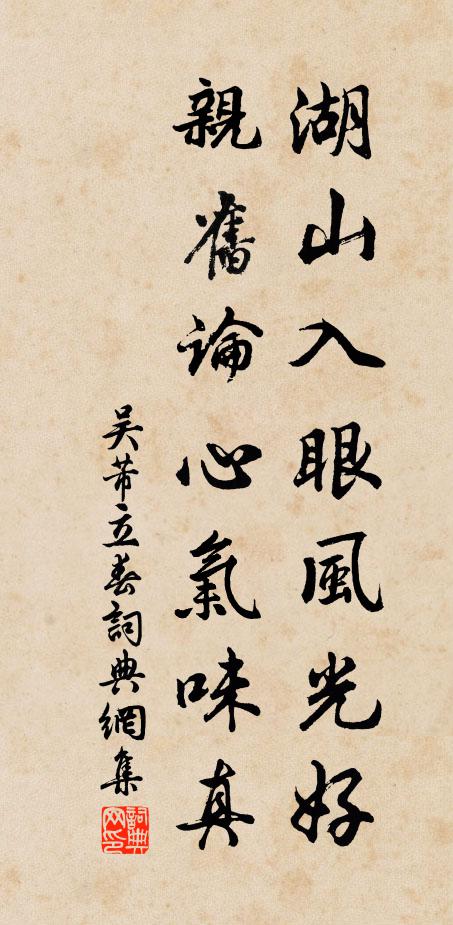 湖山入眼風光好
親舊論心氣味真
吳芾立春詞典網集
詞典網印